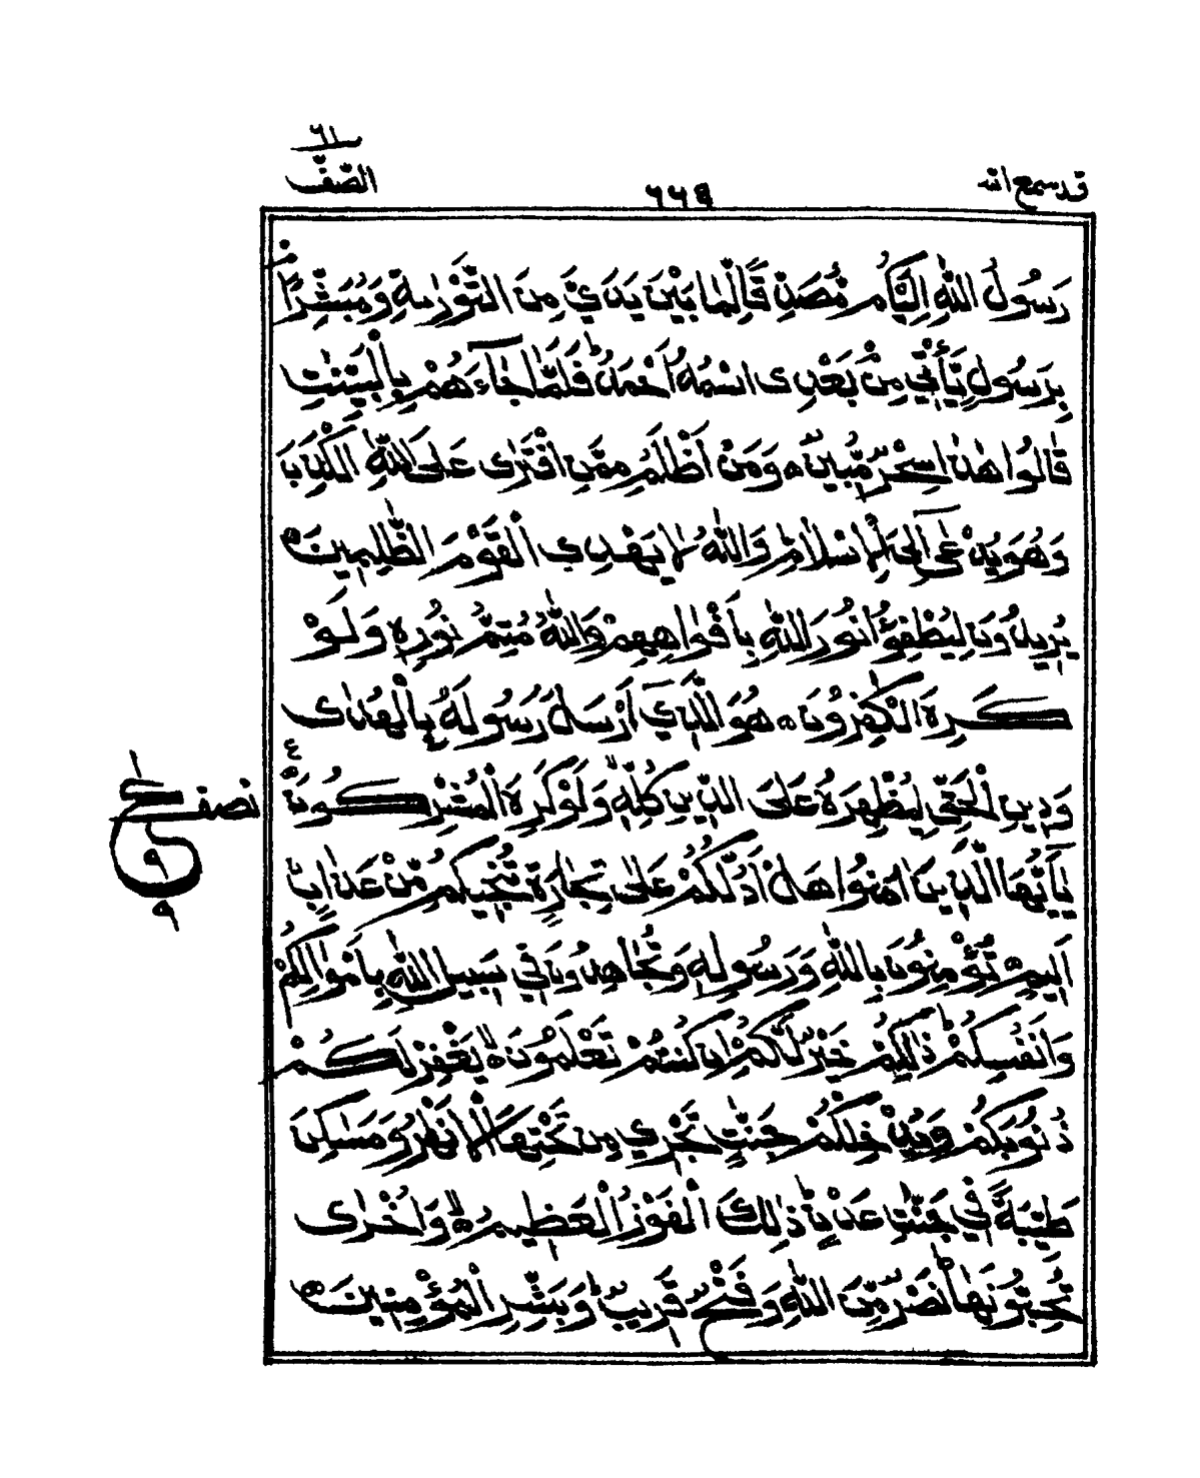 قد سمع الله
٦٦٩
٦١
الصّفّ
رَسُولُ اللّٰهِ اِلَيْكُمْ مُّصَدِّقًا لِّمَا بَيْنَ يَدَيَّ مِنَ التَّوْرٰىةِ وَمُبَشِّرًاۢ
بِرَسُولٍ يَّأْتِيْ مِنْۢ بَعْدِى اسْمُهٗۤ اَحْمَدُ ؕ فَلَمَّا جَآءَهُمْ بِالْبَيِّنٰتِ
قَالُوا هٰذَا سِحْرٌ مُّبِينٌ ۝ وَمَنْ اَظْلَمُ مِمَّنِ افْتَرٰى عَلَى اللّٰهِ الْكَذِبَ
وَهُوَ يُدْعٰىۤ اِلَى الْاِسْلَامِ ؕ وَاللّٰهُ لَا يَهْدِى الْقَوْمَ الظّٰلِمِينَ ۝
يُرِيدُونَ لِيُطْفِـُٔوا نُورَ اللّٰهِ بِاَفْوَاهِهِمْ وَاللّٰهُ مُتِمُّ نُورِهٖ وَلَوْ
كَرِهَ الْكٰفِرُونَ ۝ هُوَ الَّذِيٓ اَرْسَلَ رَسُولَهٗ بِالْهُدٰى
وَدِينِ الْحَقِّ لِيُظْهِرَهٗ عَلَى الدِّينِ كُلِّهٖ وَلَوْ كَرِهَ الْمُشْرِكُونَ ۝
نصف
ع
٩
٩
يٰۤاَيُّهَا الَّذِينَ اٰمَنُوا هَلْ اَدُلُّكُمْ عَلٰى تِجَارَةٍ تُنْجِيكُمْ مِّنْ عَذَابٍ
اَلِيمٍ ۝ تُؤْمِنُونَ بِاللّٰهِ وَرَسُولِهٖ وَتُجَاهِدُونَ فِي سَبِيلِ اللّٰهِ بِاَمْوَالِكُمْ
وَاَنْفُسِكُمْ ؕ ذٰلِكُمْ خَيْرٌ لَّكُمْ اِنْ كُنْتُمْ تَعْلَمُونَ ۝ يَغْفِرْ لَكُمْ
ذُنُوبَكُمْ وَيُدْخِلْكُمْ جَنّٰتٍ تَجْرِي مِنْ تَحْتِهَا الْاَنْهٰرُ وَمَسٰكِنَ
طَيِّبَةً فِي جَنّٰتِ عَدْنٍ ؕ ذٰلِكَ الْفَوْزُ الْعَظِيمُ ۝ وَاُخْرٰى
تُحِبُّونَهَا ؕ نَصْرٌ مِّنَ اللّٰهِ وَفَتْحٌ قَرِيبٌ ؕ وَبَشِّرِ الْمُؤْمِنِينَ ۝